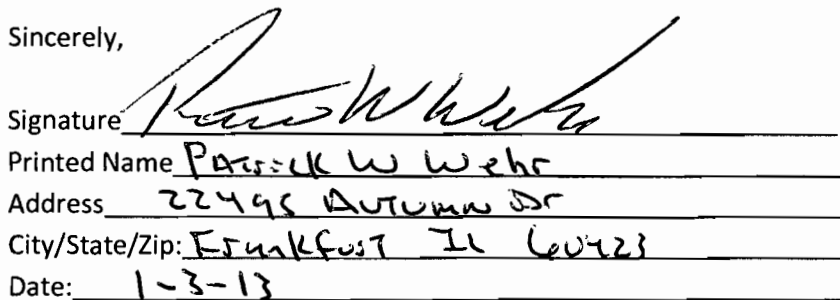 Sincerely,
Signature Patrick W Wehr
Printed Name Patrick W Wehr
Address 22495 Autumn Dr
City/State/Zip: Frankfort IL 60423
Date: 1-3-13